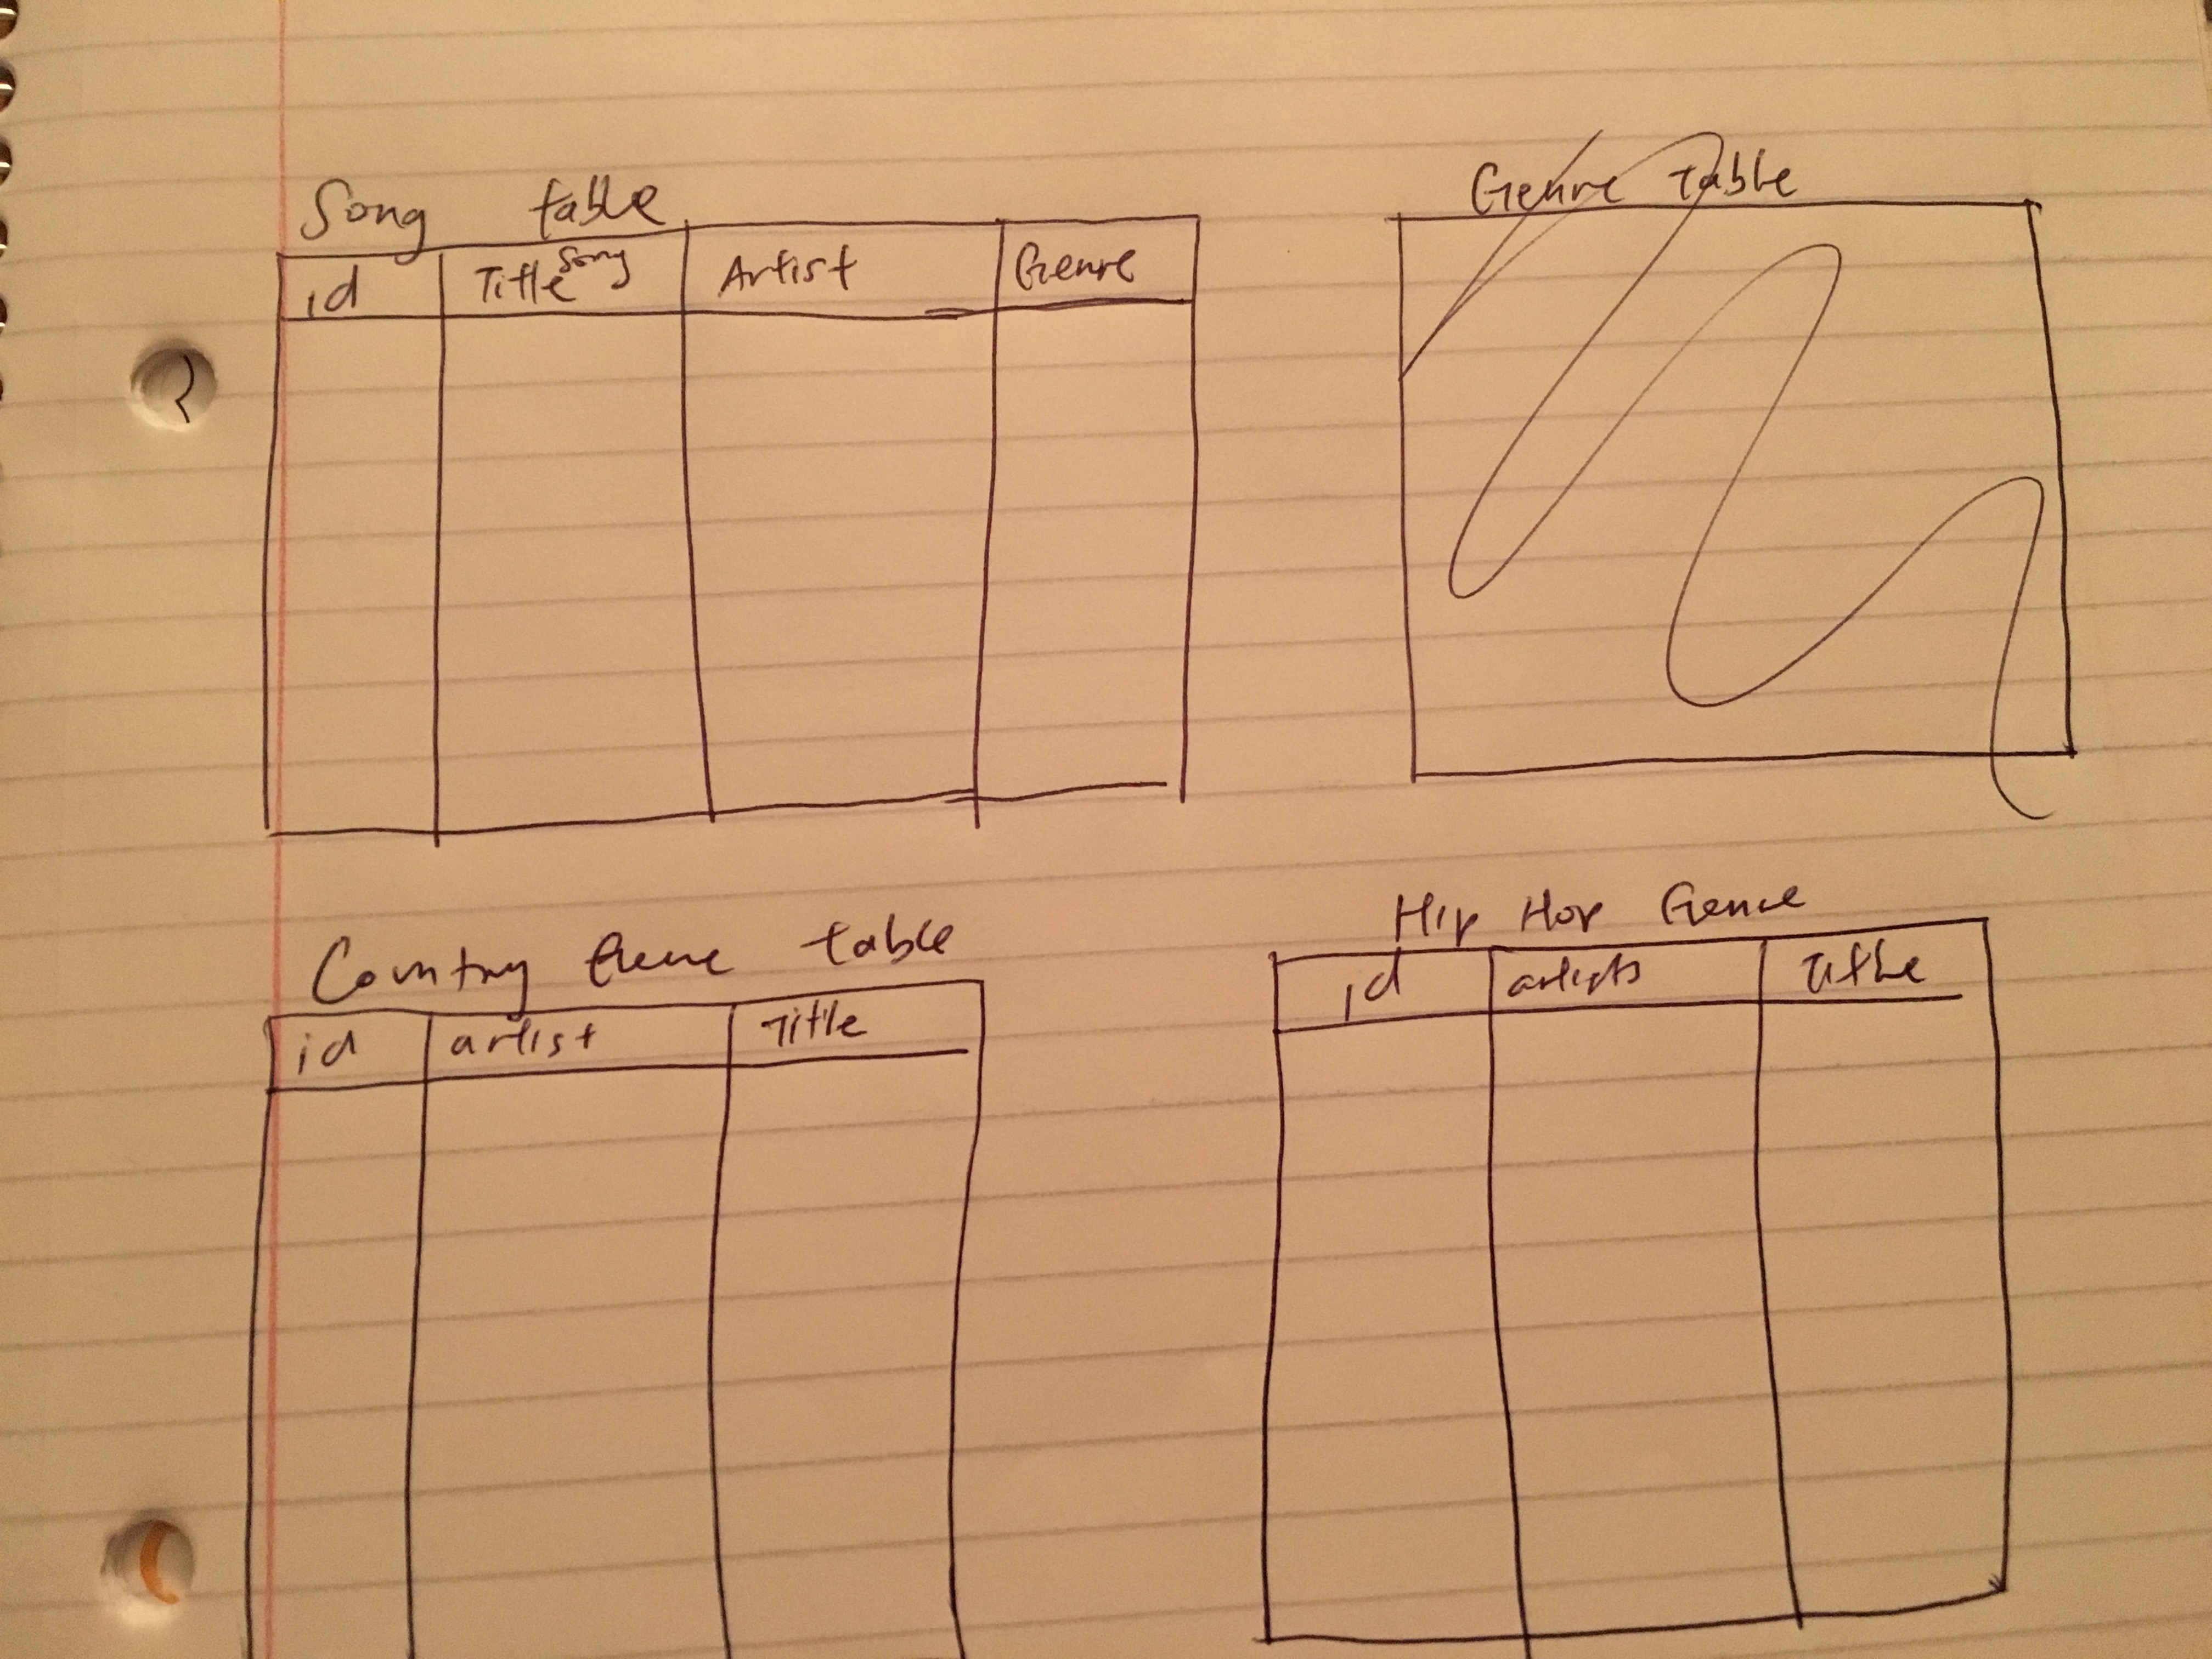 Song table
id Title song Artist Genre
Genre Table
Country Genre table
id artist Title
Hip Hop Genre
id artists Title